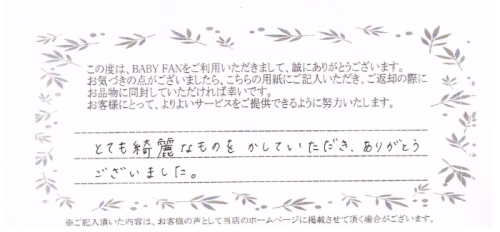 この度は、BABY FANをご利用いただきまして、誠にありがとうございます。
お気づきの点がございましたら、こちらの用紙にご記入いただき、ご返却の際に
お品物に同封していただければ幸いです。
お客様にとって、よりよいサービスをご提供できるように努力いたします。
とても綺麗なものをかしていただき、ありがとう
ございました。
※ご記入頂いた内容は、お客様の声として当店のホームページに掲載させて頂く場合がございます。